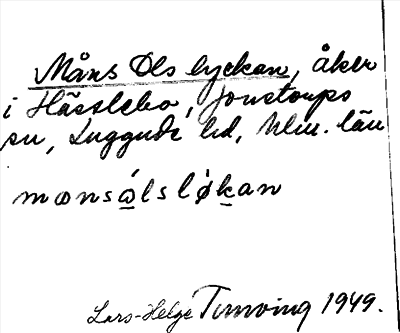 Måns Ols lyckan, åker
i Hässlebo, Jonstorps
sn, Luggude hd, Mlm. län
mɷnsὼlslø̀kan
Lars-Helge Turnving 1949.